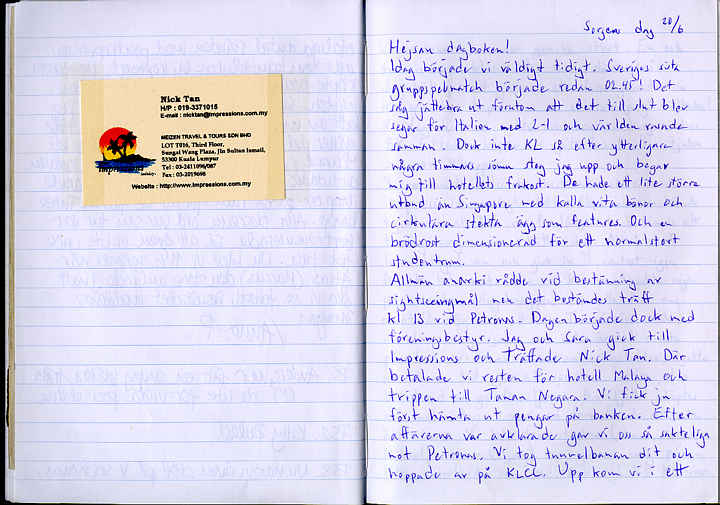 Nick Tan
H/P : 019-3371015
E-mail : nicktan@impressions.com.my
MEZZEN TRAVEL & TOURS SDN BHD
LOT T016, Third Floor,
Sungai Wang Plaza, Jln Sultan Ismail,
53300 Kuala Lumpur
Tel : 03-2411096/087
Fax : 03-2019698
Impressions
Website : http://www.impressions.com.my
Sorgens dag 20/6
Hejsan dagboken!
Idag började vi väldigt tidigt. Sveriges sista
gruppspelmatch började redan 02.45! Det
såg jättebra ut förutom att det till slut blev
seger för Italien med 2-1 och världen rasade
samman. Dock inte KL så efter ytterligare
några timmars sömn steg jag upp och begav
mig till hotellets frukost. De hade ett lite större
utbud än Singapore med kalla vita bönor och
cirkulära stekta ägg som features. Och en
brödrost dimensionerad för ett normalstort
studentrum.
Allmän anarki rådde vid bestämning av
sightseeingmål men det bestämdes träff
kl 13 vid Petronas. Dagen började dock med
föreningsbestyr. Jag och Sara gick till
Impressions och träffade Nick Tan. Där
betalade vi resten för hotell Malaya och
trippen till Taman Negara. Vi fick ju
först hämta ut pengar på banken. Efter
affärerna var avklarade gav vi oss så sakteliga
mot Petronas. Vi tog tunnelbanan dit och
hoppade av på KLCC. Upp kom vi i ett